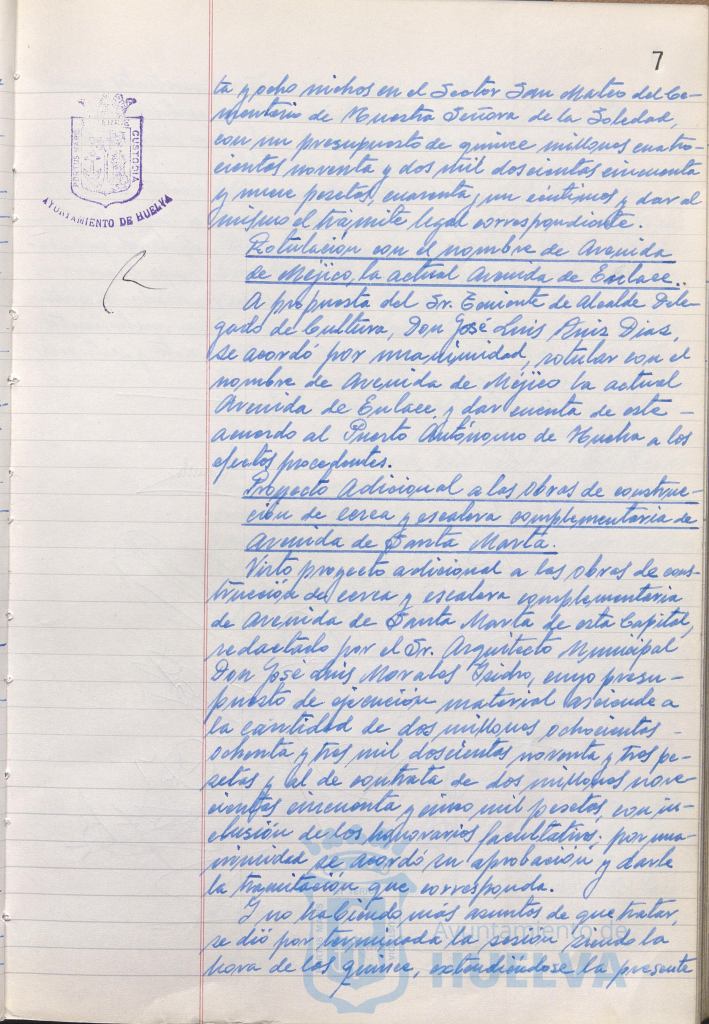 7
ta y ocho nichos en el Sector San Mateo del Ce-
menterio de Nuestra Señora de la Soledad,
con un presupuesto de quince millones cuatro-
cientos noventa y dos mil doscientas cincuenta
y nueve pesetas, cuarenta y un céntimos y dar al
mismo el trámite legal correspondiente.
Rotulación con el nombre de Avenida
de Méjico, la actual Avenida de Enlace.
A propuesta del Sr. Teniente de Alcalde Dele-
gado de Cultura, Don José Luis Ruiz Díaz,
se acordó por unanimidad, rotular con el
nombre de Avenida de Méjico la actual
Avenida de Enlace, y dar cuenta de este -
acuerdo al Puerto Autónomo de Huelva a los
efectos procedentes.
Proyecto Adicional a las obras de construc-
ción de cerca y escalera complementaria de
Avenida de Santa Marta.
Visto proyecto adicional a las obras de cons-
trucción de cerca y escalera complementaria
de Avenida de Santa Marta de esta Capital,
redactado por el Sr. Arquitecto Municipal
Don José Luis Morales Isidro, cuyo presu-
puesto de ejecución material asciende a
la cantidad de dos millones ochocientas -
ochenta y tres mil doscientas noventa y tres pe-
setas y al de contrata de dos millones nove-
cientas cincuenta y cinco mil pesetas, con in-
clusión de los honorarios facultativos; por una-
nimidad se acordó su aprobación y darle
la tramitación que corresponda.
Y no habiendo más asuntos de que tratar,
se dió por terminada la sesión siendo la
hora de las quince, extendiéndose la presente
CUSTODIA
AYUNTAMIENTO DE HUELVA
Ayuntamiento de
HUELVA